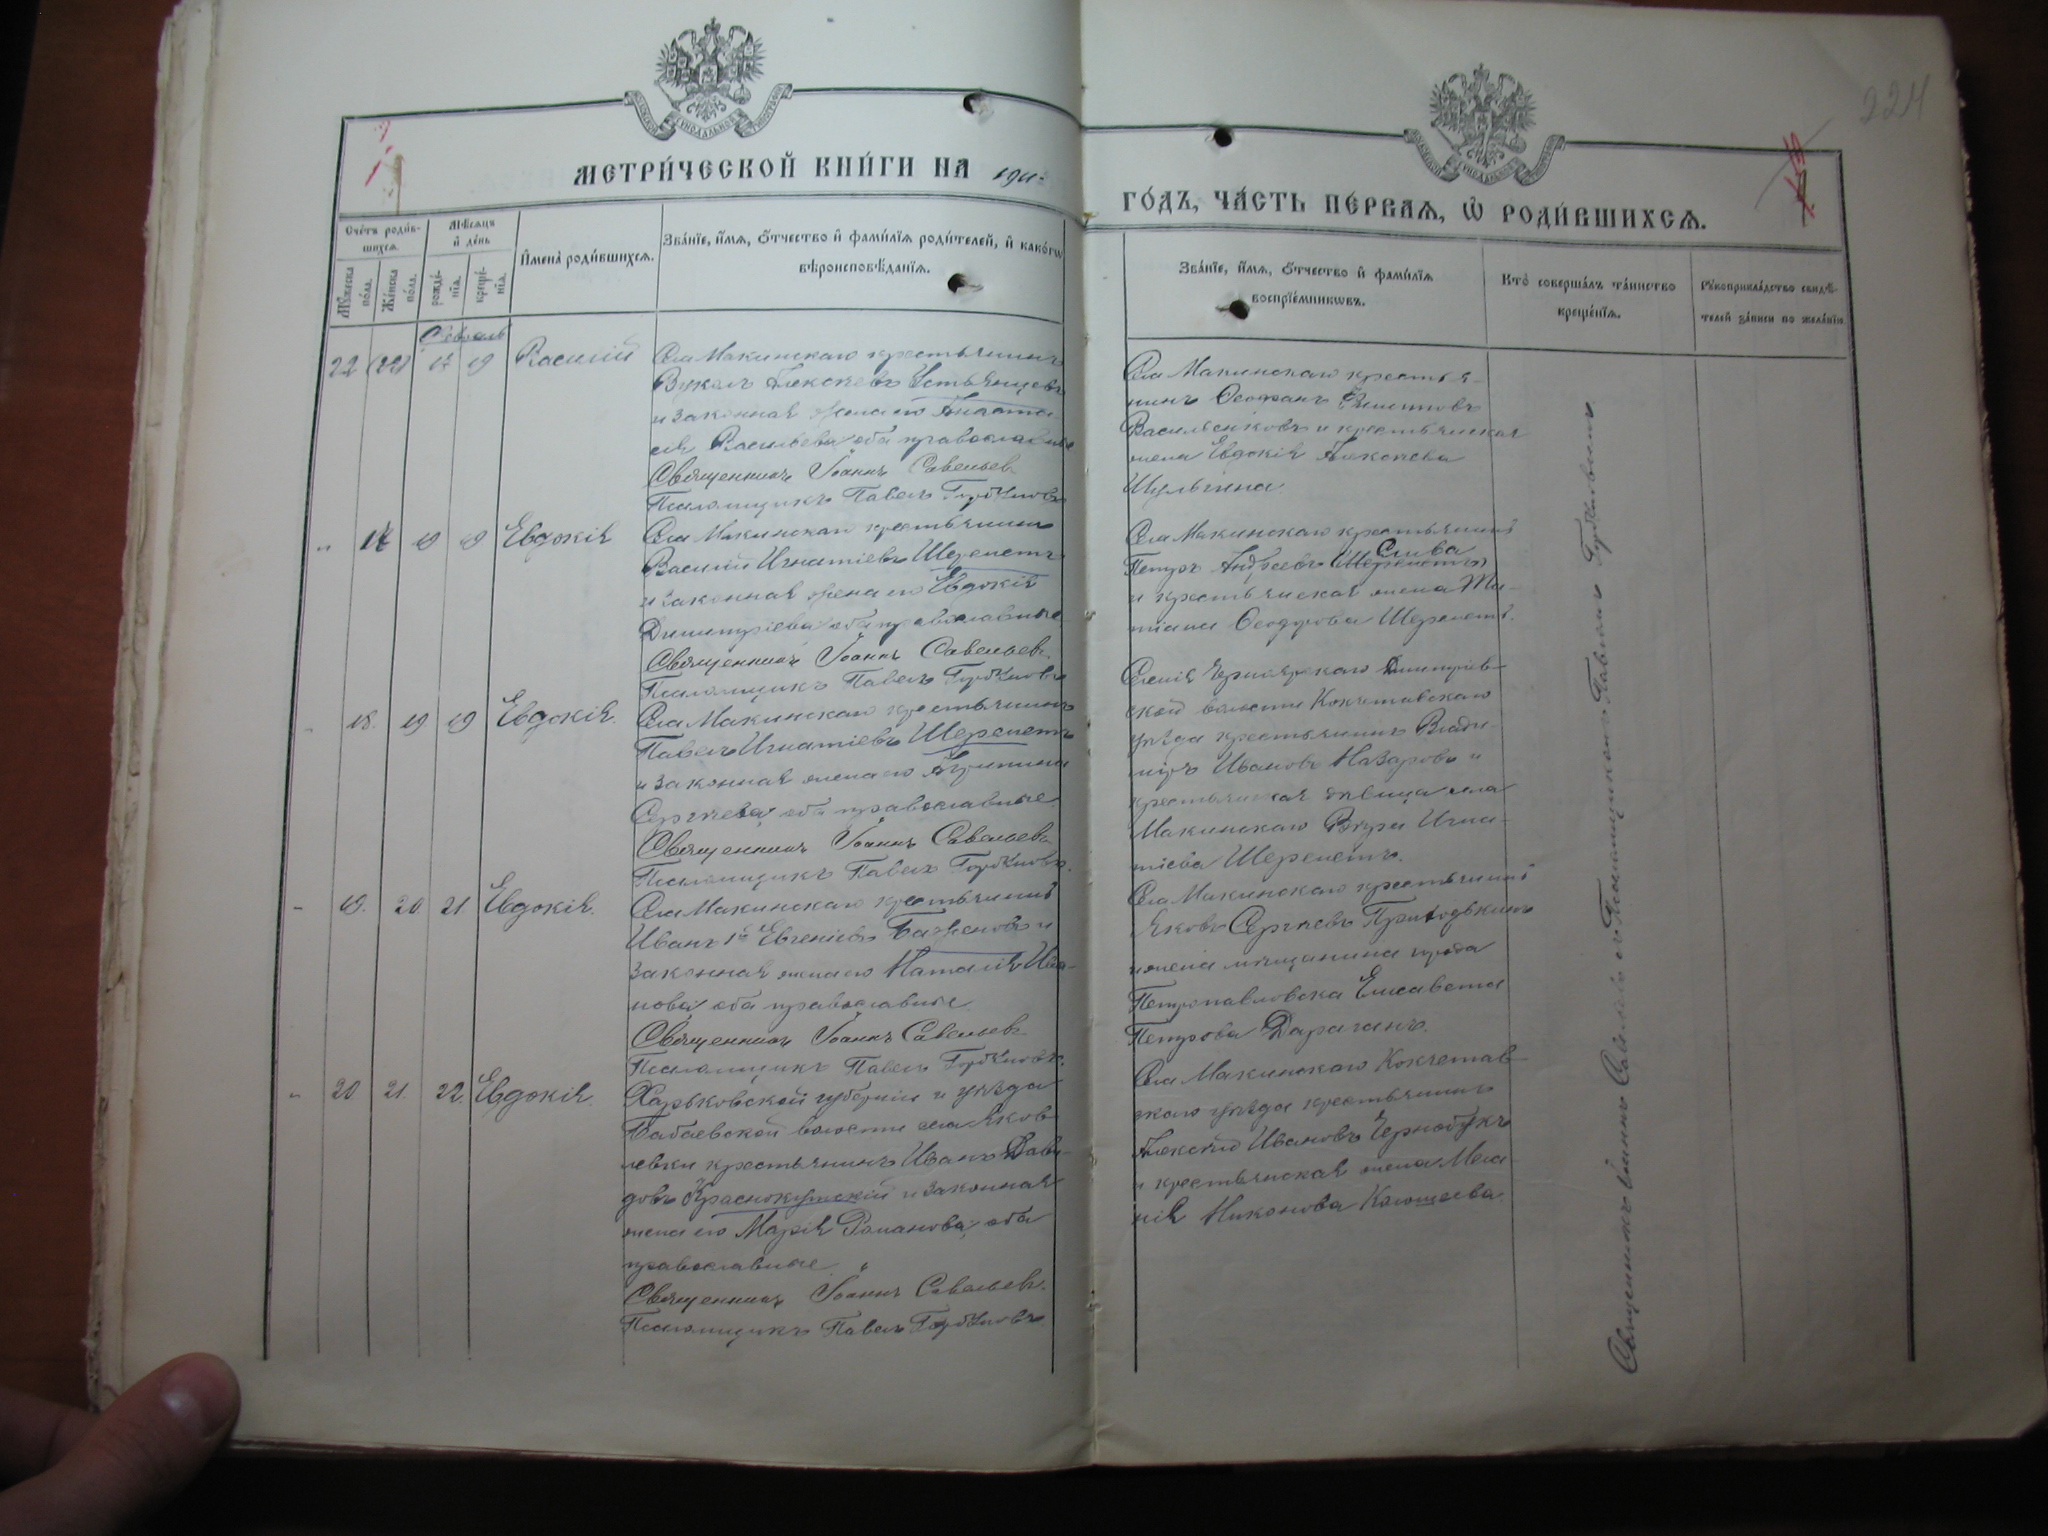 224
МЕТРИ́ЧЕСКОЙ КНИ́ГИ НА 1911
ГО́ДЪ, ЧА́СТЬ ПЕ́РВАЯ, Ѡ РОДИ́ВШИХСЯ.
Сче́тъ роди́в-
шихся.
Мѣ́сяцъ
и де́нь
Имена̀ роди́вшихся.
Зва́нїе, и́мя, о́тчество и фами́лїя роди́телей, и како́гѡ
вѣроисповѣ́данїя.
Му́жеска
по́ла.
Же́нска
по́ла.
рожде́-
нїя.
креще́-
нїя.
Зва́нїе, и́мя, о́тчество и фами́лїя
воспрїе́мниковъ.
Кто̀ соверша́лъ та́инство
креще́нїя.
Рукоприкла́дство свидѣ́-
телей за́писи по жела́нїю.
Февраль
22 (22) 17 19 Василій
Села Макинскаго крестьянинъ
Вуколъ Алексѣевъ Устьянцевъ
и законная жена его Анаста
сія Васильева, оба православные
Священникъ Іоаннъ Савельевъ
Псаломщикъ Павелъ Горбуновъ
Села Макинскаго крестья-
нинъ Ѳеофанъ Филиповъ
Васильениковъ и крестьянская
жена Евдокія Алексѣева
Шульгина.
" 17 19 19 Евдокія
Села Макинскаго крестьянинъ
Василій Игнатіевъ Шереметъ
и законная жена его Евдокія
Димитріева, оба православные
Священникъ Іоаннъ Савельевъ
Псаломщикъ Павелъ Горбуновъ
Села Макинскаго крестьянинъ
Слива
Петръ Андреевъ (Шереметъ)
и крестьянская жена Та-
тіана Ѳеодорова Шереметъ.
" 18. 19 19 Евдокія.
Села Макинскаго крестьянинъ
Павелъ Игнатіевъ Шереметъ
и законная жена его
Сергѣева, оба православные.
Священникъ Іоаннъ Савельевъ
Псаломщикъ Павелъ Горбуновъ.
Селенія Черноярскаго Димитріев-
ской волости Кокчетавскаго
уѣзда крестьянинъ Влади-
міръ Ивановъ Назаровъ и
крестьянская дѣвица села
Макинскаго Вѣра Игна-
тіева Шереметъ.
" 19. 20. 21. Евдокія.
Села Макинскаго крестьянинъ
Иванъ 1й Евгеніевъ Баженовъ и
законная жена его Наталія Ива-
нова, оба православные
Священникъ Іоаннъ Савельевъ
Псаломщикъ Павелъ Горбуновъ.
Села Макинскаго крестьянинъ
Яковъ Сергѣевъ Приходькинъ
и жена мѣщанина города
Петропавловска Елисавета
Петрова Дараганъ.
" 20 21. 22. Евдокія.
Харьковской губерніи и уѣзда
Бабаевской волости села Яков-
левки крестьянинъ Иванъ Дави-
довъ Краснокутскій и законная
жена его Марія Романова, оба
православные.
Священникъ Іоаннъ Савельевъ.
Псаломщикъ Павелъ Горбуновъ
Села Макинскаго Кокчетав-
скаго уѣзда крестьянинъ
Алексѣй Ивановъ Чернобукъ
и крестьянская жена Мела-
нія Никонова
Священникъ Іоаннъ Савельевъ съ Псаломщикомъ Павломъ Горбуновымъ.